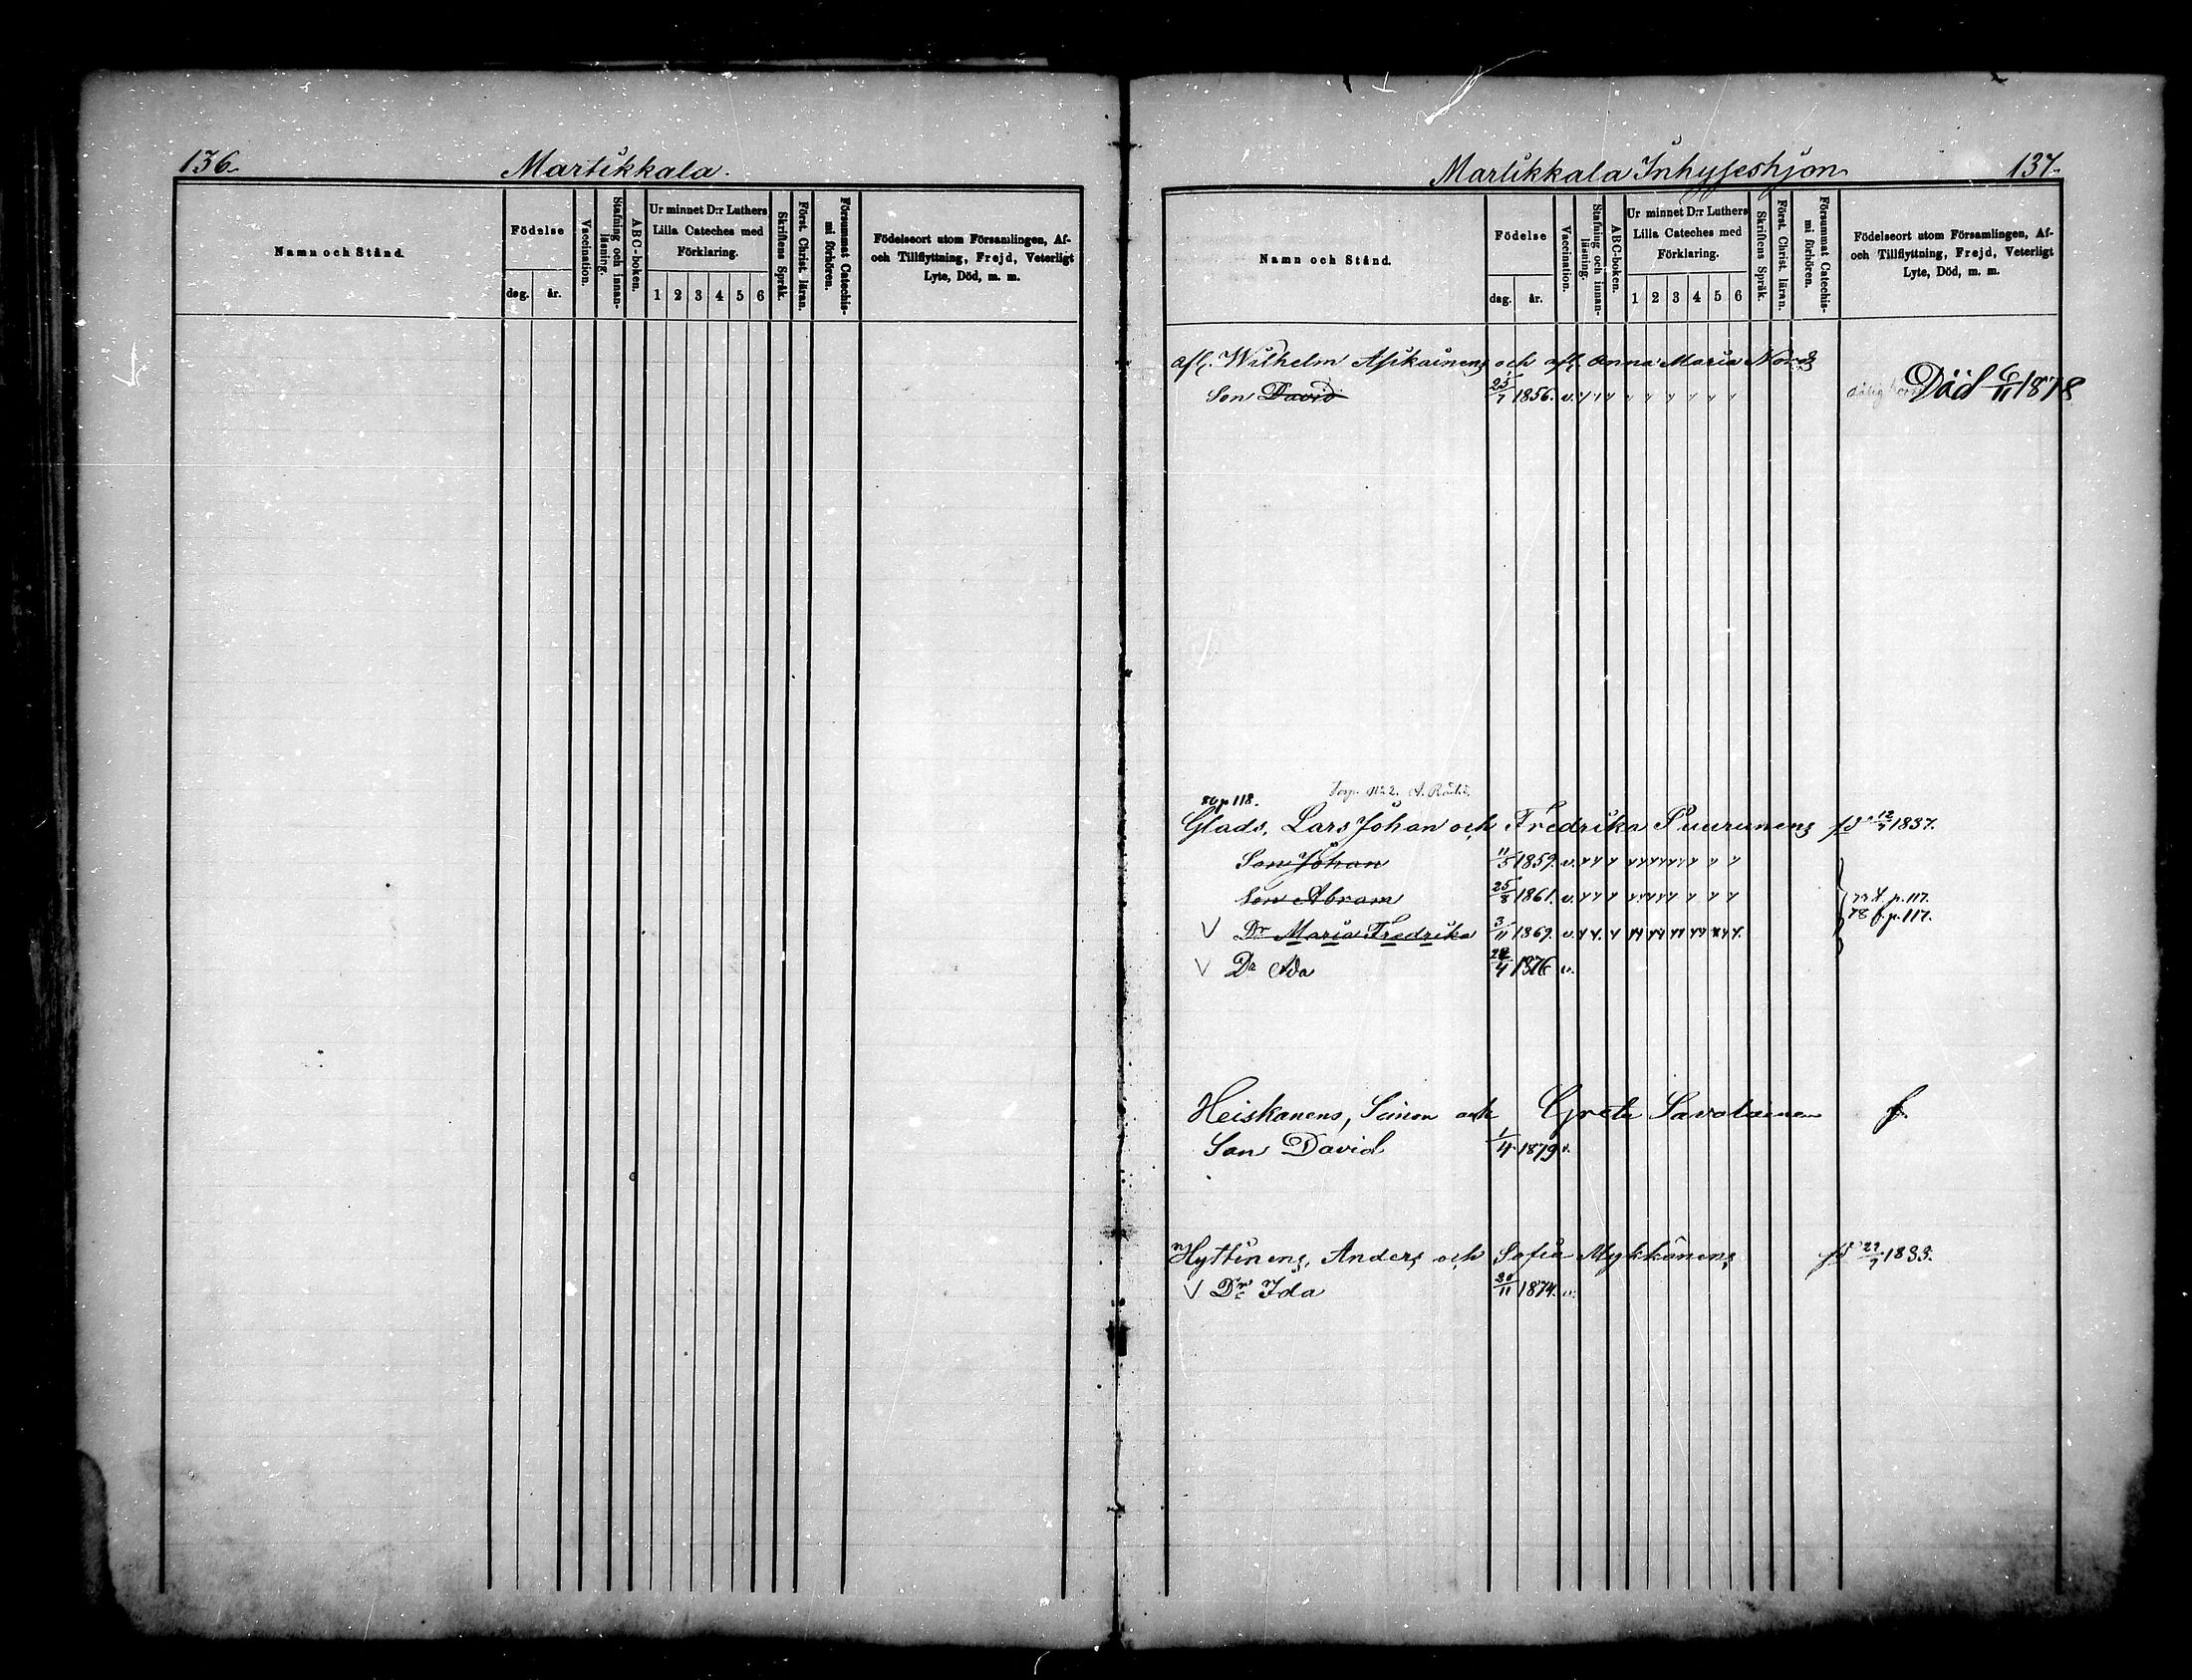 136.
Martikkala.
Namn och Stånd.
Födelse
dag. år.
Vaccination.
Stafning och innanläsning.
ABC-boken.
Ur minnet D:r Luthers
Lilla Cateches med
Förklaring.
1 2 3 4 5 6
Skriftens Språk.
Först. Christ. läran.
Försummat Catechismi förhören.
Födelseort utom Församlingen, Af-
och Tillflyttning, Frejd, Veterligt
Lyte, Död, m. m.
Martikkala Inhyseshjon
137.
Namn och Stånd.
Födelse
dag. år.
Vaccination.
Stafning och innanläsning.
ABC-boken.
Ur minnet D:r Luthers
Lilla Cateches med
Förklaring.
1 2 3 4 5 6
Skriftens Språk.
Först. Christ. läran.
Försummat Catechismi förhören.
Födelseort utom Församlingen, Af-
och Tillflyttning, Frejd, Veterligt
Lyte, Död, m. m.
afl. Wilhelm Asikainens och afl. Anna Maria Nords
Son David 25/7 1856. v. Död 6/11 1878
80 p 118.
Glads, Lars Johan och Fredrika Puurunens fd 12/7 1837.
Son Johan 11/5 1859. v.
Son Abram 25/8 1861. v. p. 117.
78 f. p. 117.
V Dr Maria Fredrika 3/11 1869. v.
V Dr Ada 24/4 1876 v.
Heiskanens, Simon och Greta Savolainen f.
Son David 1/4 1879 v.
Hyttinens, Anders och Sofia Mykkänens fd 29/7 1833.
V Dr Ida 30/11 1874. v.